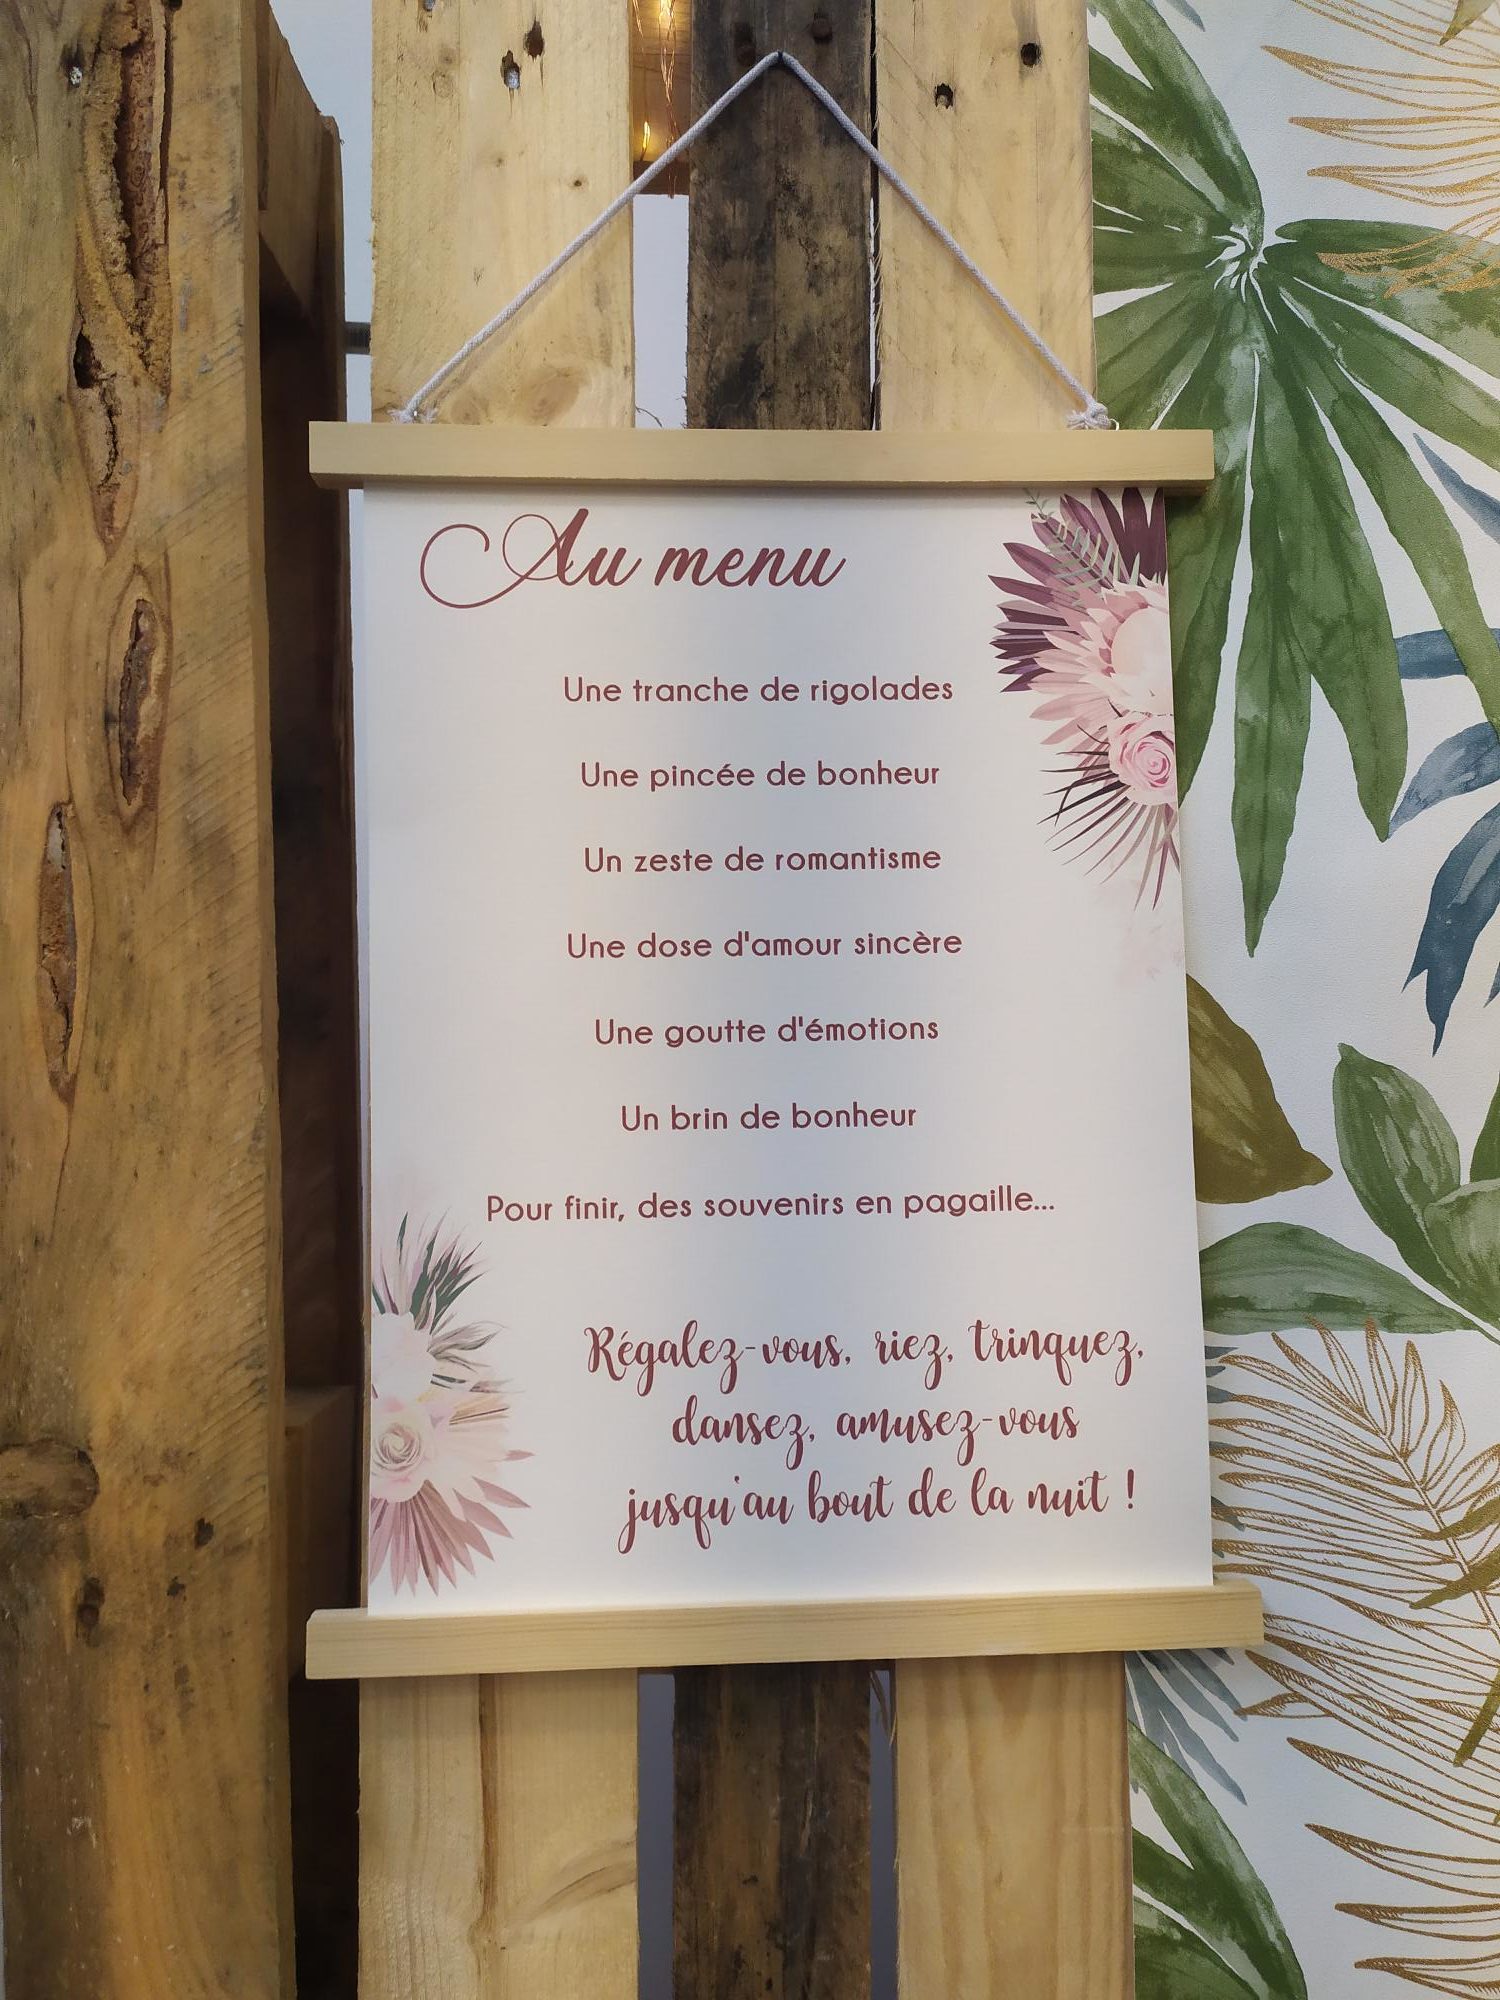 Au menu
Une tranche de rigolades
Une pincée de bonheur
Un zeste de romantisme
Une dose d'amour sincère
Une goutte d'émotions
Un brin de bonheur
Pour finir, des souvenirs en pagaille...
Régalez-vous, riez, trinquez,
dansez, amusez-vous
jusqu'au bout de la nuit !